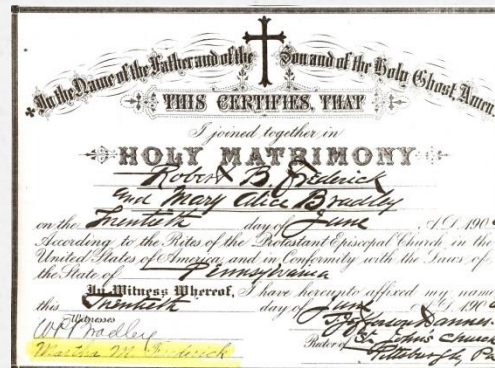 In the Name of the Father and of the Son and of the Holy Ghost, Amen
THIS CERTIFIES, THAT
I joined together in
HOLY MATRIMONY
Robert B Frederick
and Mary Alice Bradley
on the Twentieth day of June A.D. 190
According to the Rites of the Protestant Episcopal Church in the
United States of America and in Conformity with the Laws of
the State of Pennsylvania
In Witness Whereof, I have hereunto affixed my name
this Twentieth day of June A.D. 190
Witnesses
Bradley
Martha M. Frederick
Rector of St Johns Church
Pittsburgh, Pa